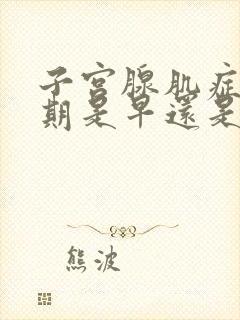 子宫腺肌症
期是早还是
熊波